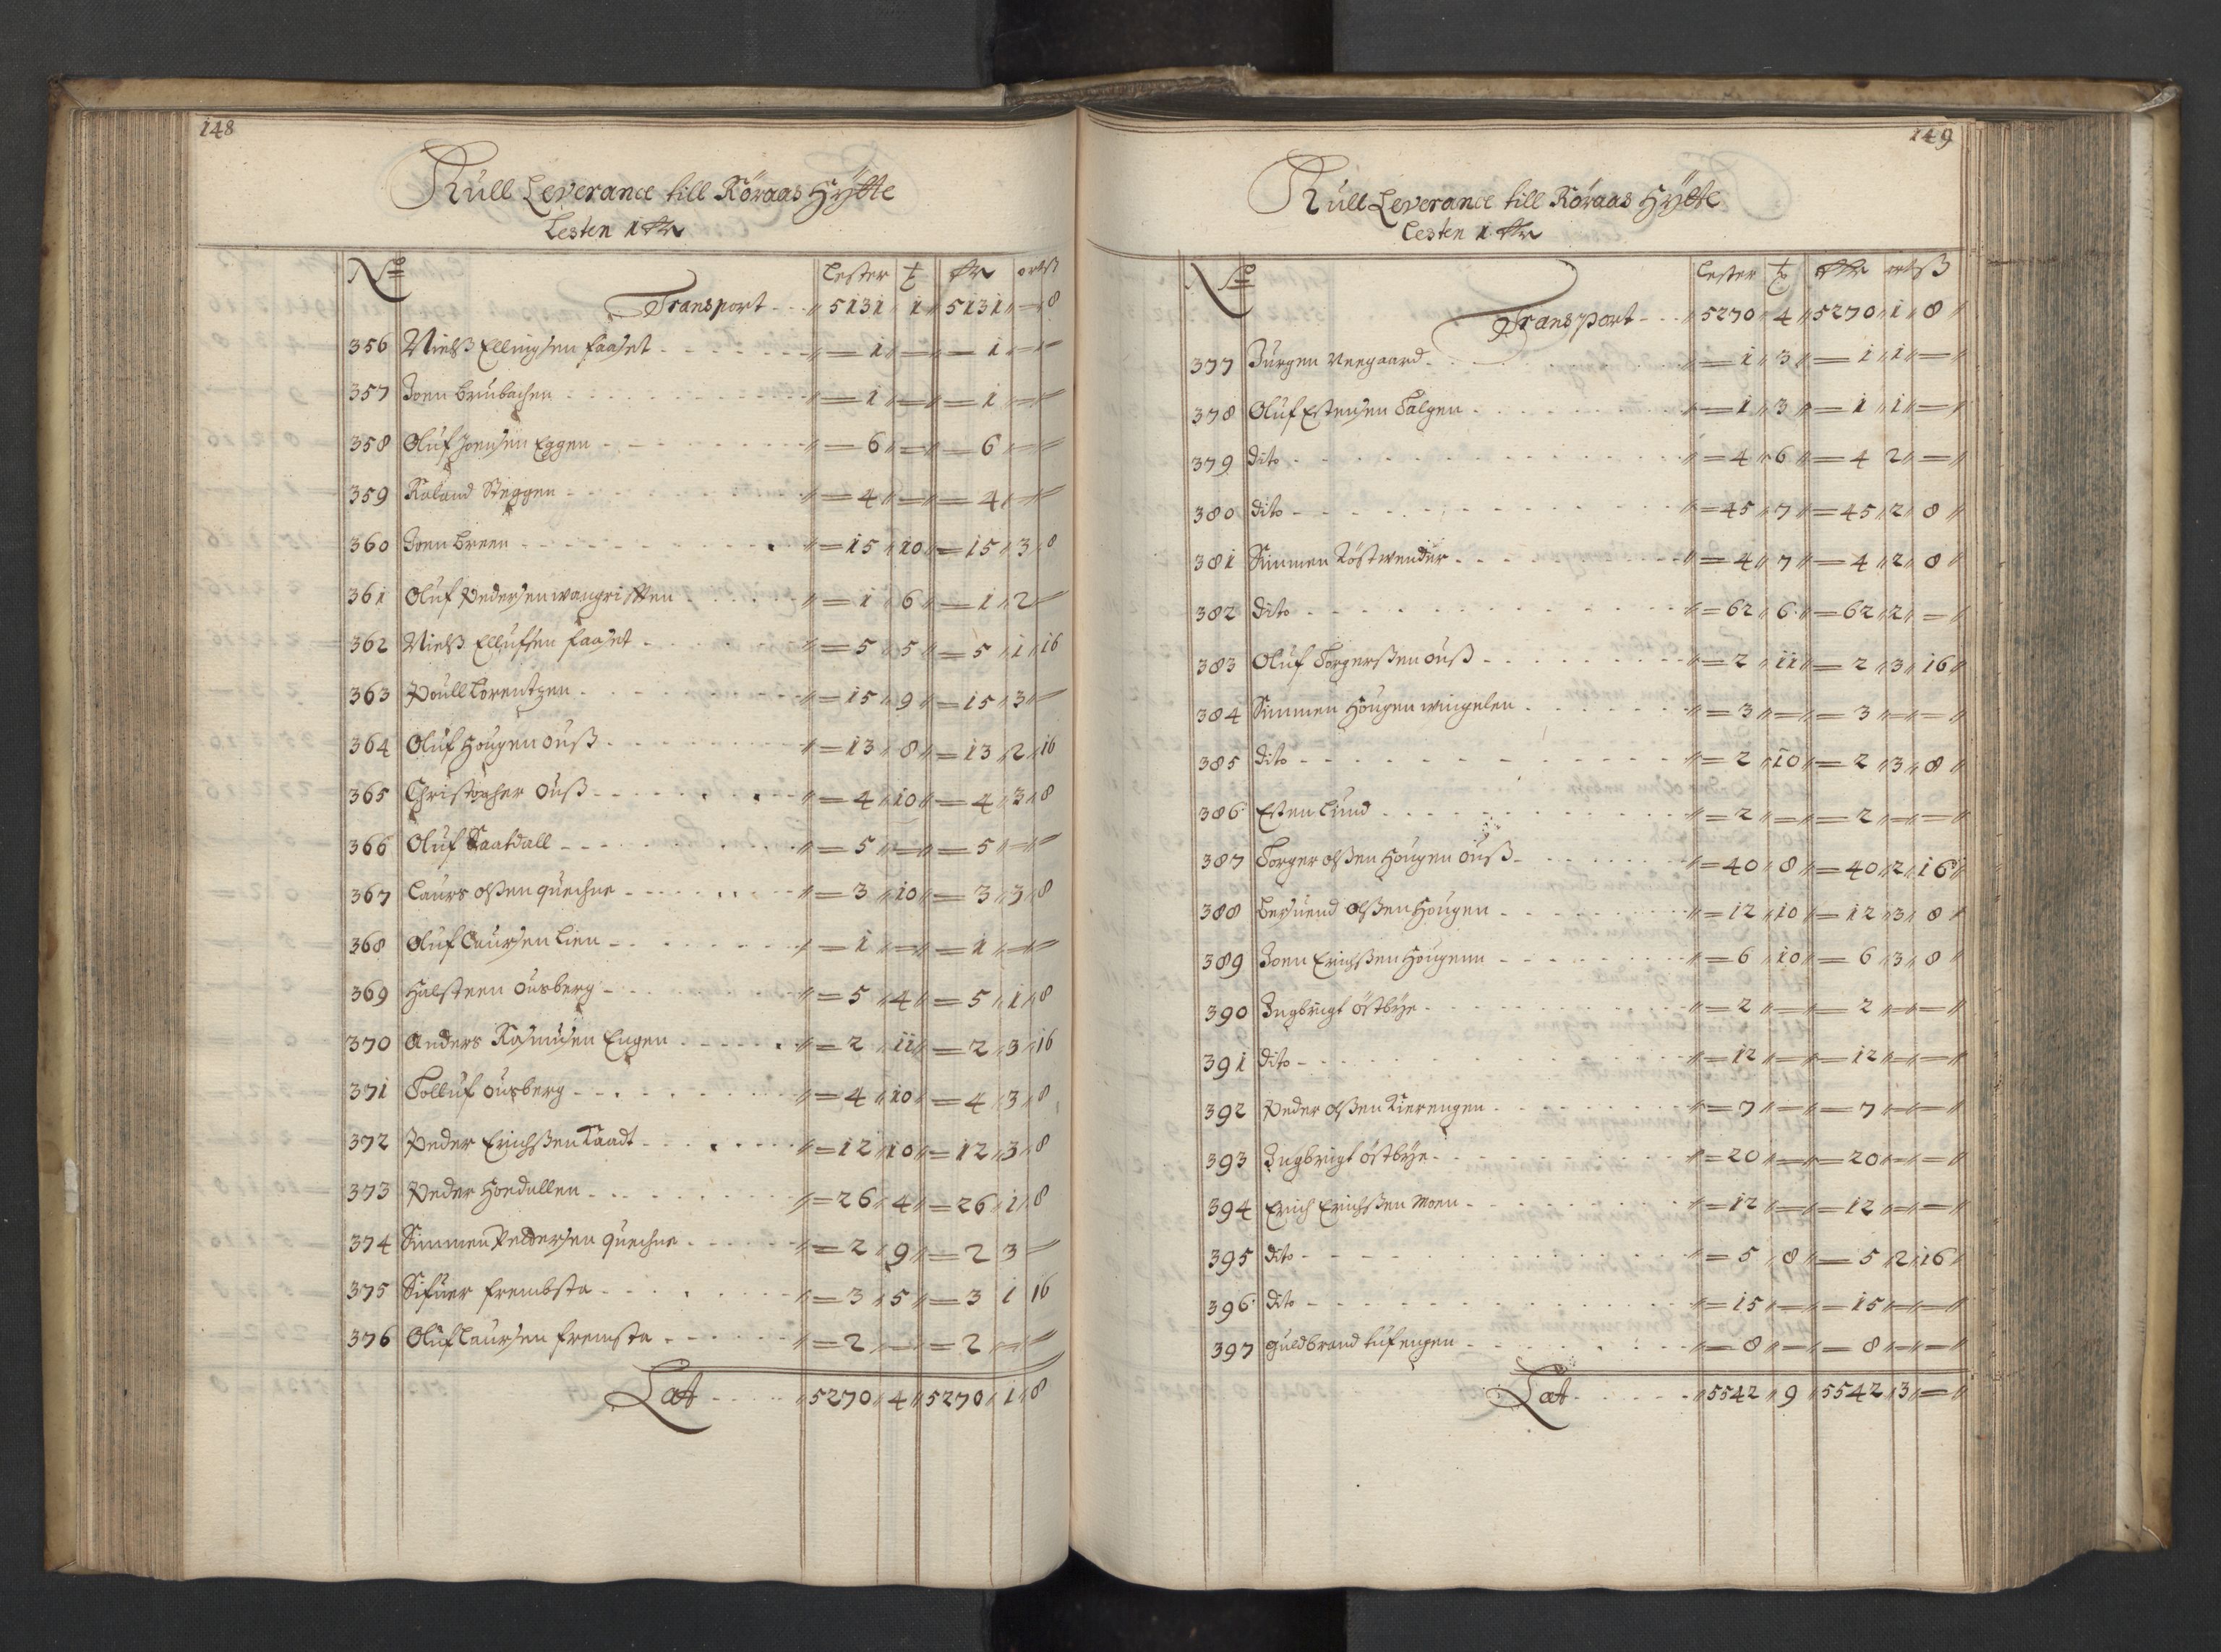 148
Kull Leverance till Röraas Hÿtte
Lesten 1 Rdr
No Lester t Rdr ort ß
Transport - - - 5131 1 5131 — 8
356 Nielß Ellingsen faaset - - - 1 — 1 — —
357 Joen Brúbachen - - - 1 — 1 — —
358 Olúf Joensen Eggen - - - 6 — 6 — —
359 Roland Steggen - - - 4 — 4 — —
360 Joen Breen - - - 15 10 15 3 8
361 Olúf Pedersen wangrøften - - - 1 6 1 2 —
362 Nielß Ellúfsen faaset - - - 5 5 5 1 16
363 Poúll Lorentzen - - - 15 9 15 3 —
364 Olúf Hougen ouß - - - 13 8 13 2 16
365 Christopher Ouß - - - 4 10 4 3 8
366 Olúf Raatdall - - - 5 — 5 — —
367 Laurs olßen quechne - - - 3 10 3 3 8
368 Olúf Laúrsen Lien - - - 1 — 1 — —
369 Halsteen Ousberg - - - 5 4 5 1 8
370 Anders Rasmúsen Engen - - - 2 11 2 3 16
371 Tollúf Ousberg - - - 4 10 4 3 8
372 Peder Erichßen Raadt - - - 12 10 12 3 8
373 Peder Hoedallen - - - 26 4 26 1 8
374 Simmen Peddersen quechne - - - 2 9 2 3 —
375 Sifúer frembsta - - - 3 5 3 1 16
376 Olúf Laúrsen fremsta - - - 2 — 2 — —
Lat - - - 5270 4 5270 1 8
149
Kull Leverance till Röraas Hÿtte
Lesten 1 Rdr
No Lester t Rdr ort ß
Transport - - - 5270 4 5270 1 8
377 Jürgen Neegaard - - - 1 3 1 1 —
378 Olúf Estensen Talgen - - - 1 3 1 1 —
379 dito - - - 4 6 4 2 —
380 dito - - - 45 7 45 2 8
381 Simmen Röstwendúr - - - 4 7 4 2 8
382 dito - - - 62 6 62 2 —
383 Olúf Torgerßen oúß - - - 2 11 2 3 16
384 Simmen Hougen wingelen - - - 3 — 3 — —
385 dito - - - 2 10 2 3 8
386 Esten Lúnd - - - 2 — 2 — —
387 Torger olßen Hougen oúß - - - 40 8 40 2 16
388 Bersúend Olßen Hougen - - - 12 10 12 3 8
389 Joen Erichßen Hougenn - - - 6 10 6 3 8
390 Ingbrigt östbÿe - - - 2 — 2 — —
391 dito - - - 12 — 12 — —
392 Peder olßen Kierengen - - - 7 — 7 — —
393 Ingbrigt östbÿe - - - 20 — 20 — —
394 Erich Erichßen Moen - - - 12 — 12 — —
395 dito - - - 5 8 5 2 16
396 dito - - - 15 — 15 — —
397 Guldbrand túfengen - - - 8 — 8 — —
Lat - - - 5542 9 5542 3 —